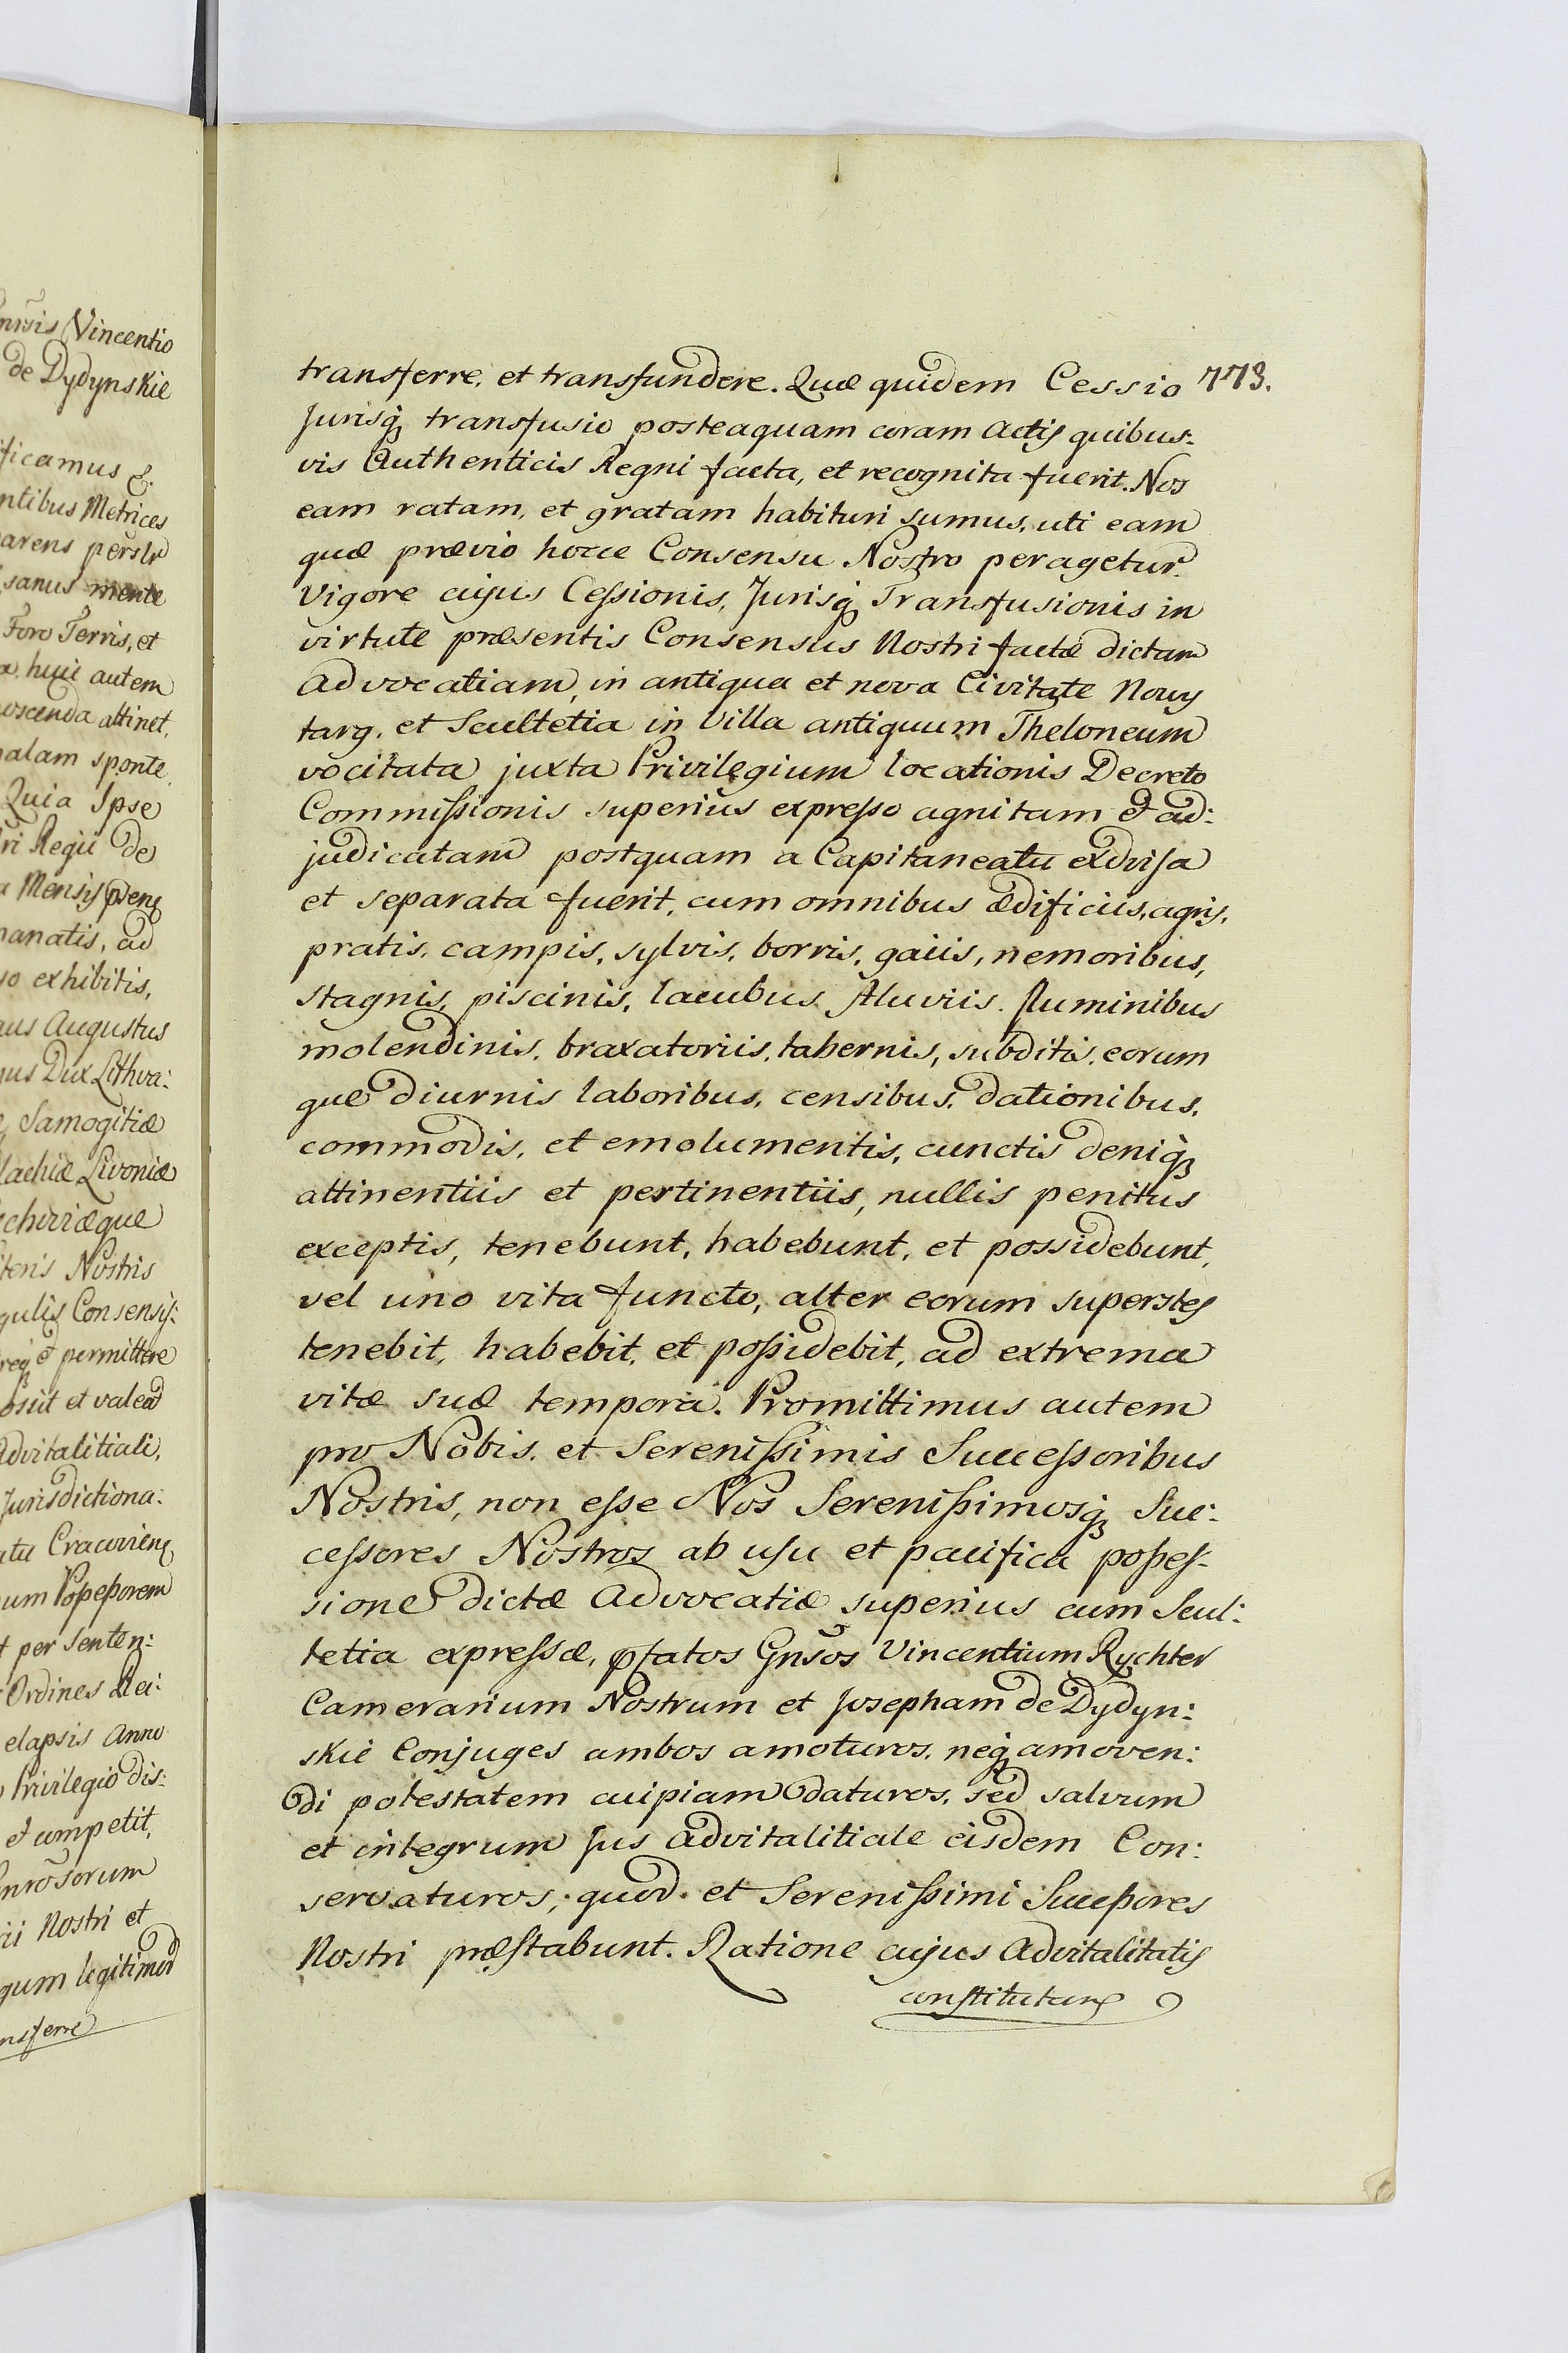 nrsis Vincentio
de Dydynskie
ficamus &.
ntibus Metrices
arens perslr
sanus mente
Foro Terris, et
huic autem
oscenda attinet,
alam sponte
Quia Ipse
ri Regii de
Mensis
anatis, ad
exhibitis,
us Augustus
us Dux Lithva:
Samogitiæ
lachiæ Livoniæ
chiviæque
teris Nostris
gulis Consensy:
et permittere
osut et valead
Advitalitiali,
Jurisdictiona:
atu Cracovienq
um Poßeßorem
per Senten:
Ordines Rei:
elapsis Anno
Privilegio dis:
et competit,
nrosorum
ii Nostri et
gum legitimod
nsferre
773.
transferre, et transfundere. Quæ quidem Cessio
Jurisq3 transfusio posteaquam coram Actis quibus:
vis Authenticis Regni facta, et recognita fuerit. Nos
eam ratam, et gratam habituri sumus, uti eam
quæ prævio hocce Consensu Nostro peragetur.
Vigore cujus Ceſsionis, Jurisq3 Transfusionis in
virtute præsentis Consensus Nostri factæ dictam
Advocatiam, in antiqua et nova Civitate Nowy
targ. et Scultetia in Villa antiquum Theloneum
vocitata juxta Privilegium locationis Decreto
Commiſsionis superius expreſso agnitam & ad:
judicatam postquam a Capitaneatu exdivisa
et separata fuerit, cum omnibus ædificiis, agris,
pratis, campis, sylvis, borris, gaiis, nemoribus,
stagnis, piscinis, lacubus, fluviis. fluminibus
molendinis, braxatoriis, tabernis, subditis, eorum
que diurnis laboribus, censibus, dationibus,
commodis, et emolumentis, cunctis deniq3
attinentiis et pertinentiis, nullis penitus
exceptis, tenebunt, habebunt, et possidebunt,
vel uno vita functo, alter eorum superstes
tenebit, habebit, et poßidebit, ad extrema
vitæ suæ tempora. Promittimus autem
pro Nobis, et Sereniſsimis Succeſsoribus
Nostris, non eſse Nos Serenißimosq3 Suc:
ceſsores Nostros ab usu et pacifica poßeſ-
sione dictæ Advocatiæ superius cum Scul:
tetia expreſsæ, pfatos Gnsos Vincentium Rychter
Camerarium Nostrum et Josepham de Dydyn:
skie Conjuges ambos amoturos, neq3 amoven:
di potestatem cuipiam daturos, sed salvum
et integrum Jus Advitalitiale eisdem Con:
servaturos; quod et Sereniſsimi Succeßores
Nostri præstabunt. Ratione cujus Advitalitatis
constitutum